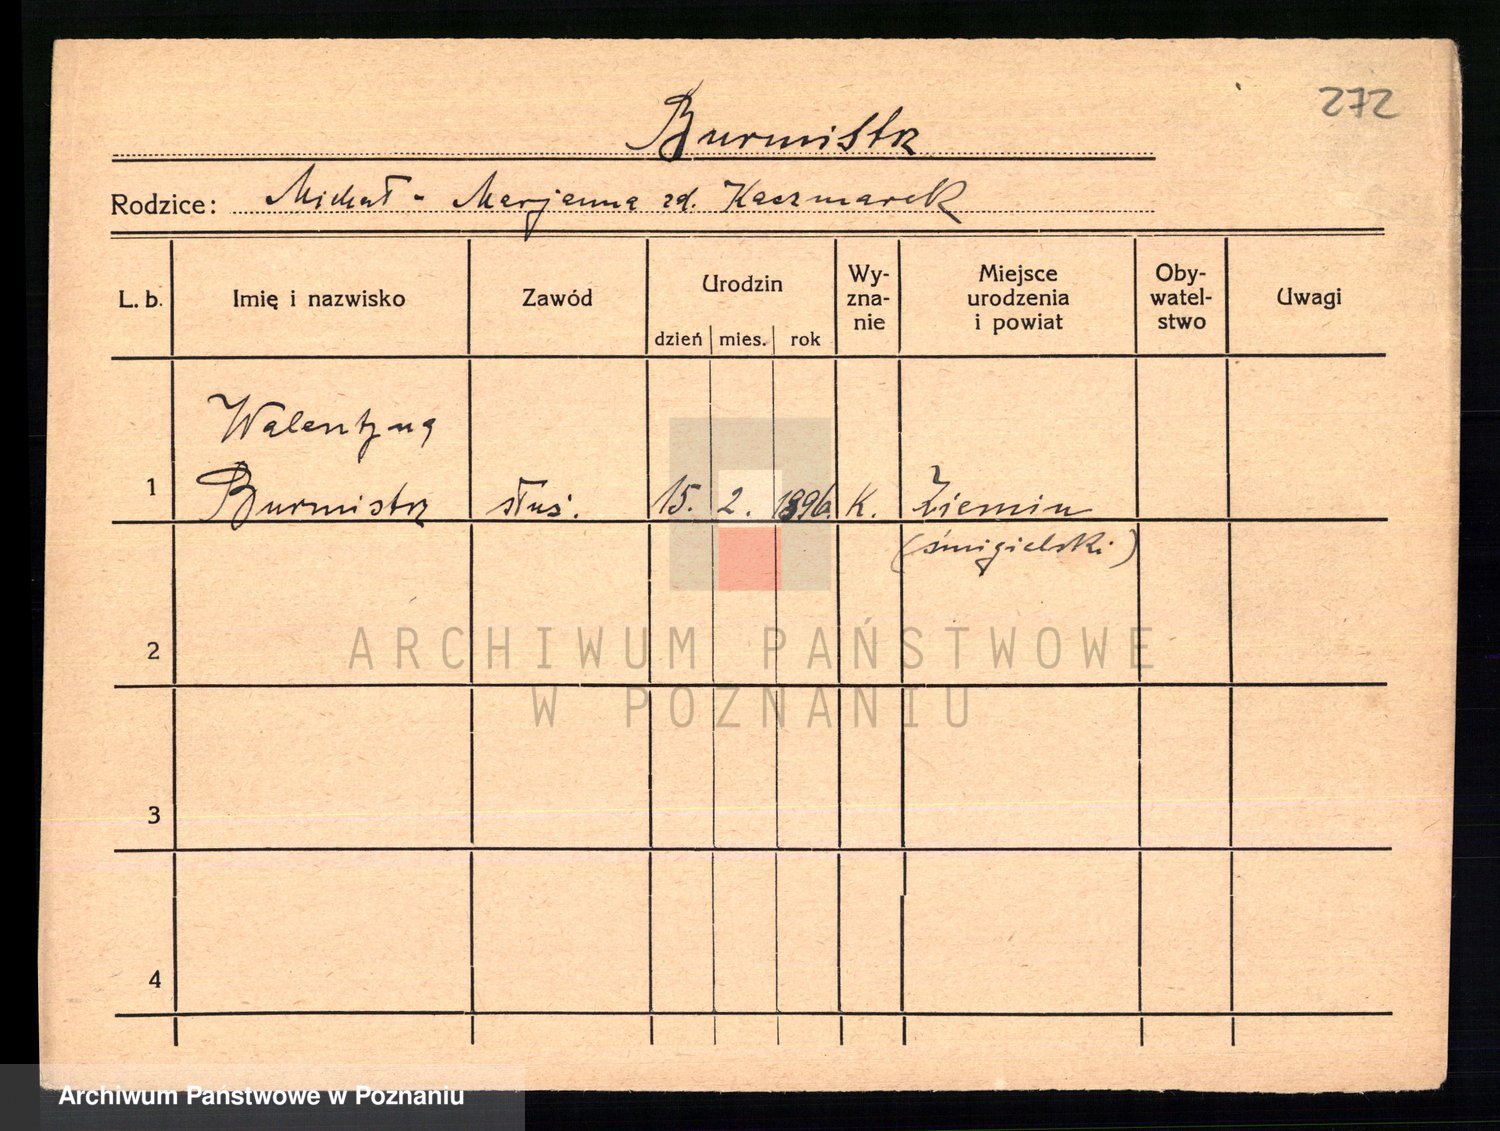 272
Burmistrz
Rodzice: Michał - Marjanna zd. Kaczmarek
L. b. Imię i nazwisko Zawód Urodzin Wy-zna-nie Miejsce urodzenia i powiat Oby-watel-stwo Uwagi
dzień mies. rok
Walentyna
1 Burmistrz służ. 15. 2. 1896. K. Ziemin
(śmigielski)
2
ARCHIWUM PAŃSTWOWE
W POZNANIU
3
4
Archiwum Państwowe w Poznaniu